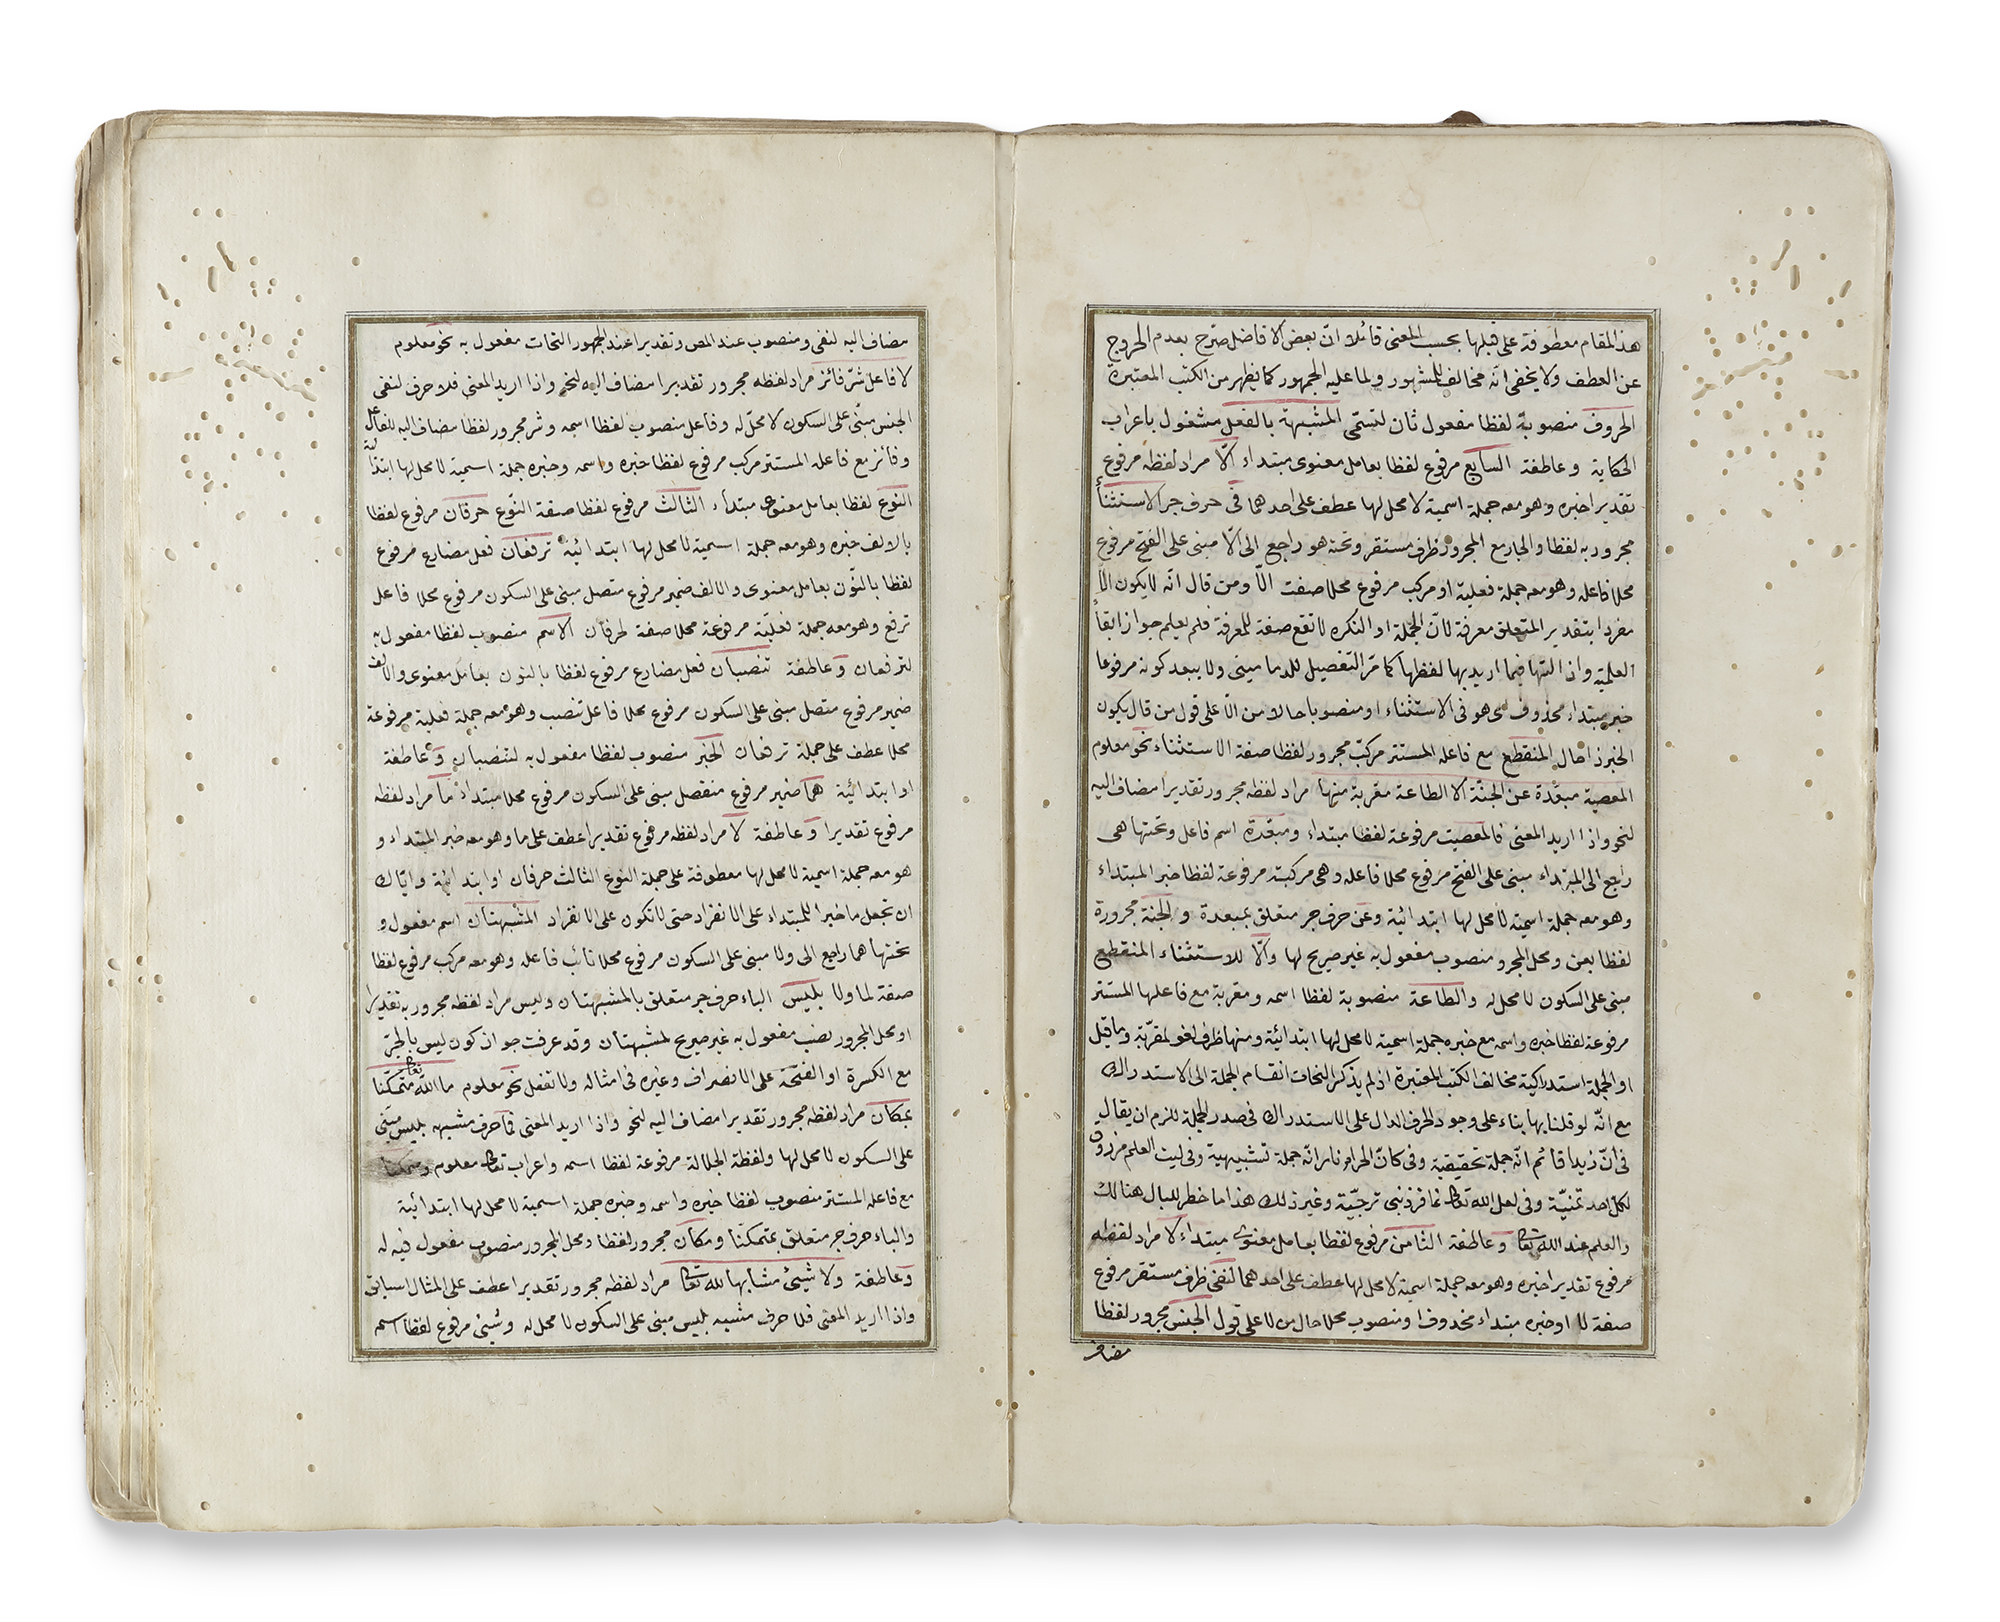 هذا المقام معطوفة على قبلها بحسب المعنى قائلا انّ بعض الافاضل صرّح بعدم الخروج
عن العطف ولا يخفى انّه مخالف للمشهور ولما عليه الجمهور كما يظهر من الكتب المعتبرة
الحروف منصوبة لفظا مفعول ثان لتسمّى المشبهة بالفعل مشغول باعراب
الحكاية وعاطفة السابع مرفوع لفظا بعامل معنوى مبتداء الّا مراد لفظه مرفوع
تقديرا خبره وهو معه جملة اسمية لا محل لها عطف على احدهما فى حرف جر الاستثناء
مجرور به لفظا والجار مع المجرور ظرف مستقر وتحته هو راجع الى الّا مبنى على الفتح مرفوع
محلا فاعله وهو معه جملة فعلية او مركب مرفوع محلا صفت الّا ومن قال انّه لا يكون الّا
مفردا بتقدير المتعلق معرفة لانّ الجملة او النكره لا تقع صفة للمعرفة فلم يعلم جواز ابقاء
العلمية واذ التها فيما اريد بها لفظها كما مرّ التفصيل للدماميني ولا يبعد كونه مرفوعا
خبر مبتداء محذوف اى هو فى الاستثناء او منصوبا حالا من الّا على قول من قال يكون
الخبر ذا حال المنقطع مع فاعله المستتر مركب مجرور لفظا صفة الاستثناء نحو معلوم
المعصية مبعّدة عن الجنّة الا الطاعة مقربة منها مراد لفظه مجرور تقديرا مضاف اليه
لنحو واذا اريد المعنى فالمعصيت مرفوعة لفظا مبتداء ومبعّدة اسم فاعل وتحتها هى
راجع الى المبتداء مبنى على الفتح مرفوع محلا فاعله وهى مركبة مرفوعة لفظا خبر المبتداء
وهو معه جملة اسمية لا محل لها ابتدائية وعن حرف جر متعلق بمبعدة والجنة مجرورة
لفظا بعن ومحل المجرور منصوب مفعول به غير صريح لها والّا للاستثناء المنقطع
مبنى على السكون لا محل له والطاعة منصوبة لفظا اسمه ومقربة مع فاعلها المستتر
مرفوعة لفظا خبره واسمه مع خبره جملة اسمية لا محل لها ابتدائية ومنها ظرف لغو لمقرّبة وما قيل
او الجملة استدراكية مخالف الكتب المعتبرة اذ لم يذكر النحات انقسام الجملة الى الاستدراك
مع انّه لو قلنا بها بناء على وجود الحرف الدال على الاستدراك فى صدر الجملة للزم ان يقال
فى انّ زيدا قائم انّه جملة تحقيقية وفى كانّ الحرام نار انّه جملة تشبيهية وفى ليت العلم مرزوق
لكل احد تمنيّة وفى لعل الله تعالى غافر ذنبى ترجيّة وغير ذلك هذا ما خطر للبال هنالك
والعلم عند الله تعالى وعاطفة الثامن مرفوع لفظا بعامل معنوى مبتداء لا مراد لفظه
مرفوع تقديرا خبره وهو معه جملة اسمية لا محل لها عطف على احدهما لنفى ظرف مستقر مرفوع
صفة لا او خبره مبتداء محذوف او منصوب محلا حال من لا على قول الجنس مجرور لفظا
مضاف
مضاف اليه لنفى ومنصوب عند المص وتقديرا عند الجمهور النحات مفعول به نحو معلوم
لا فاعل شرّ فائز مراد لفظه مجرور تقديرا مضاف اليه لنحو واذا اريد المعنى فلا حرف لنفى
الجنس مبنّى على السكون لا محلّ له وفاعل منصوب لفظا اسمه وشر مجرور لفظا مضاف اليه للفاعل
وفائز مع فاعله المستتر مركب مرفوع لفظا خبره واسمه وخبره جملة اسمية لا محل لها ابتدائية
النوع لفظا بعامل معنوى مبتداء الثالث مرفوع لفظا صفة النّوع حرفان مرفوع لفظا
بالالف خبره وهو معه جملة اسمية لا محل لها ابتدائية ترفعان فعل مضارع مرفوع
لفظا بالنّون بعامل معنوى والالف ضمير مرفوع متصل مبنى على السكون مرفوع محلا فاعل
ترفع وهو معه جملة فعليّة مرفوعة محلا صفة لحرفان الاسم منصوب لفظا مفعول به
لترفعان وعاطفة تنصبان فعل مضارع مرفوع لفظا بالنون بعامل معنوى والالف
ضمير مرفوع متصل مبنى على السكون مرفوع محلا فاعل تنصب وهو معه جملة فعلية مرفوعة
محلا عطف على جملة ترفعان الخبر منصوب لفظا مفعول به لتنصبان وعاطفة
او ابتدائية هما ضمير مرفوع منفصل مبنى على السكون مرفوع محلا مبتداء ما مراد لفظه
مرفوع تقديرا وعاطفة لا مراد لفظه مرفوع تقديرا عطف على ما وهو معه خبر المبتداء و
هو معه جملة اسمية لا محل لها معطوفة على جملة النوع الثالث حرفان او ابتدائية واياك
ان تجعل ما خبرا للمبتداء على الانفراد حتى لا تكون على الانفراد المشبهتان اسم مفعول و
تحتها هما راجع الى ولا مبنى على السكون مرفوع محلا نائب فاعله وهو معه مركب مرفوع لفظا
صفة لما ولا بليس الباء حرف جر متعلق بالمشبهتان وليس مراد لفظه مجرور به تقديرا
او محل المجرور نصب مفعول به غير صريح لمشبهتان وقد عرفت جواز كون ليس بالجرّ
مع الكسرة او الفتحة على الانصراف وغيره فى امثاله ولا تغفل نحو معلوم ما الله تعالى متمكّنا
بمكان مراد لفظه مجرور تقديرا مضاف اليه لنحو واذا اريد المعنى فما حرف مشبهه بليس مبنى
على السكون لا محل لها ولفظة الجلالة مرفوعة لفظا اسمه واعراب تعالى معلوم ومتمكنا
مع فاعله المستتر منصوب لفظا خبره واسمه وخبره جملة اسمية لا محل لها ابتدائية
والباء حرف جر متعلق بمتمكنا ومكان مجرور لفظا ومحل المجرور منصوب مفعول فيه له
وعاطفة ولا شيئ مشابها لله تعالى مراد لفظه مجرور تقديرا عطف على المثال السابق
واذا اريد المعنى فلا حرف مشبه بليس مبنى على السكون لا محل له وشيئ مرفوع لفظا اسمه